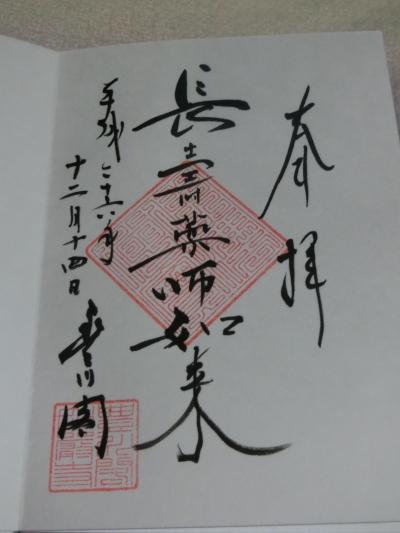 奉拝
長壽薬師如来
平成二十六年
十二月十四日
豊川閣